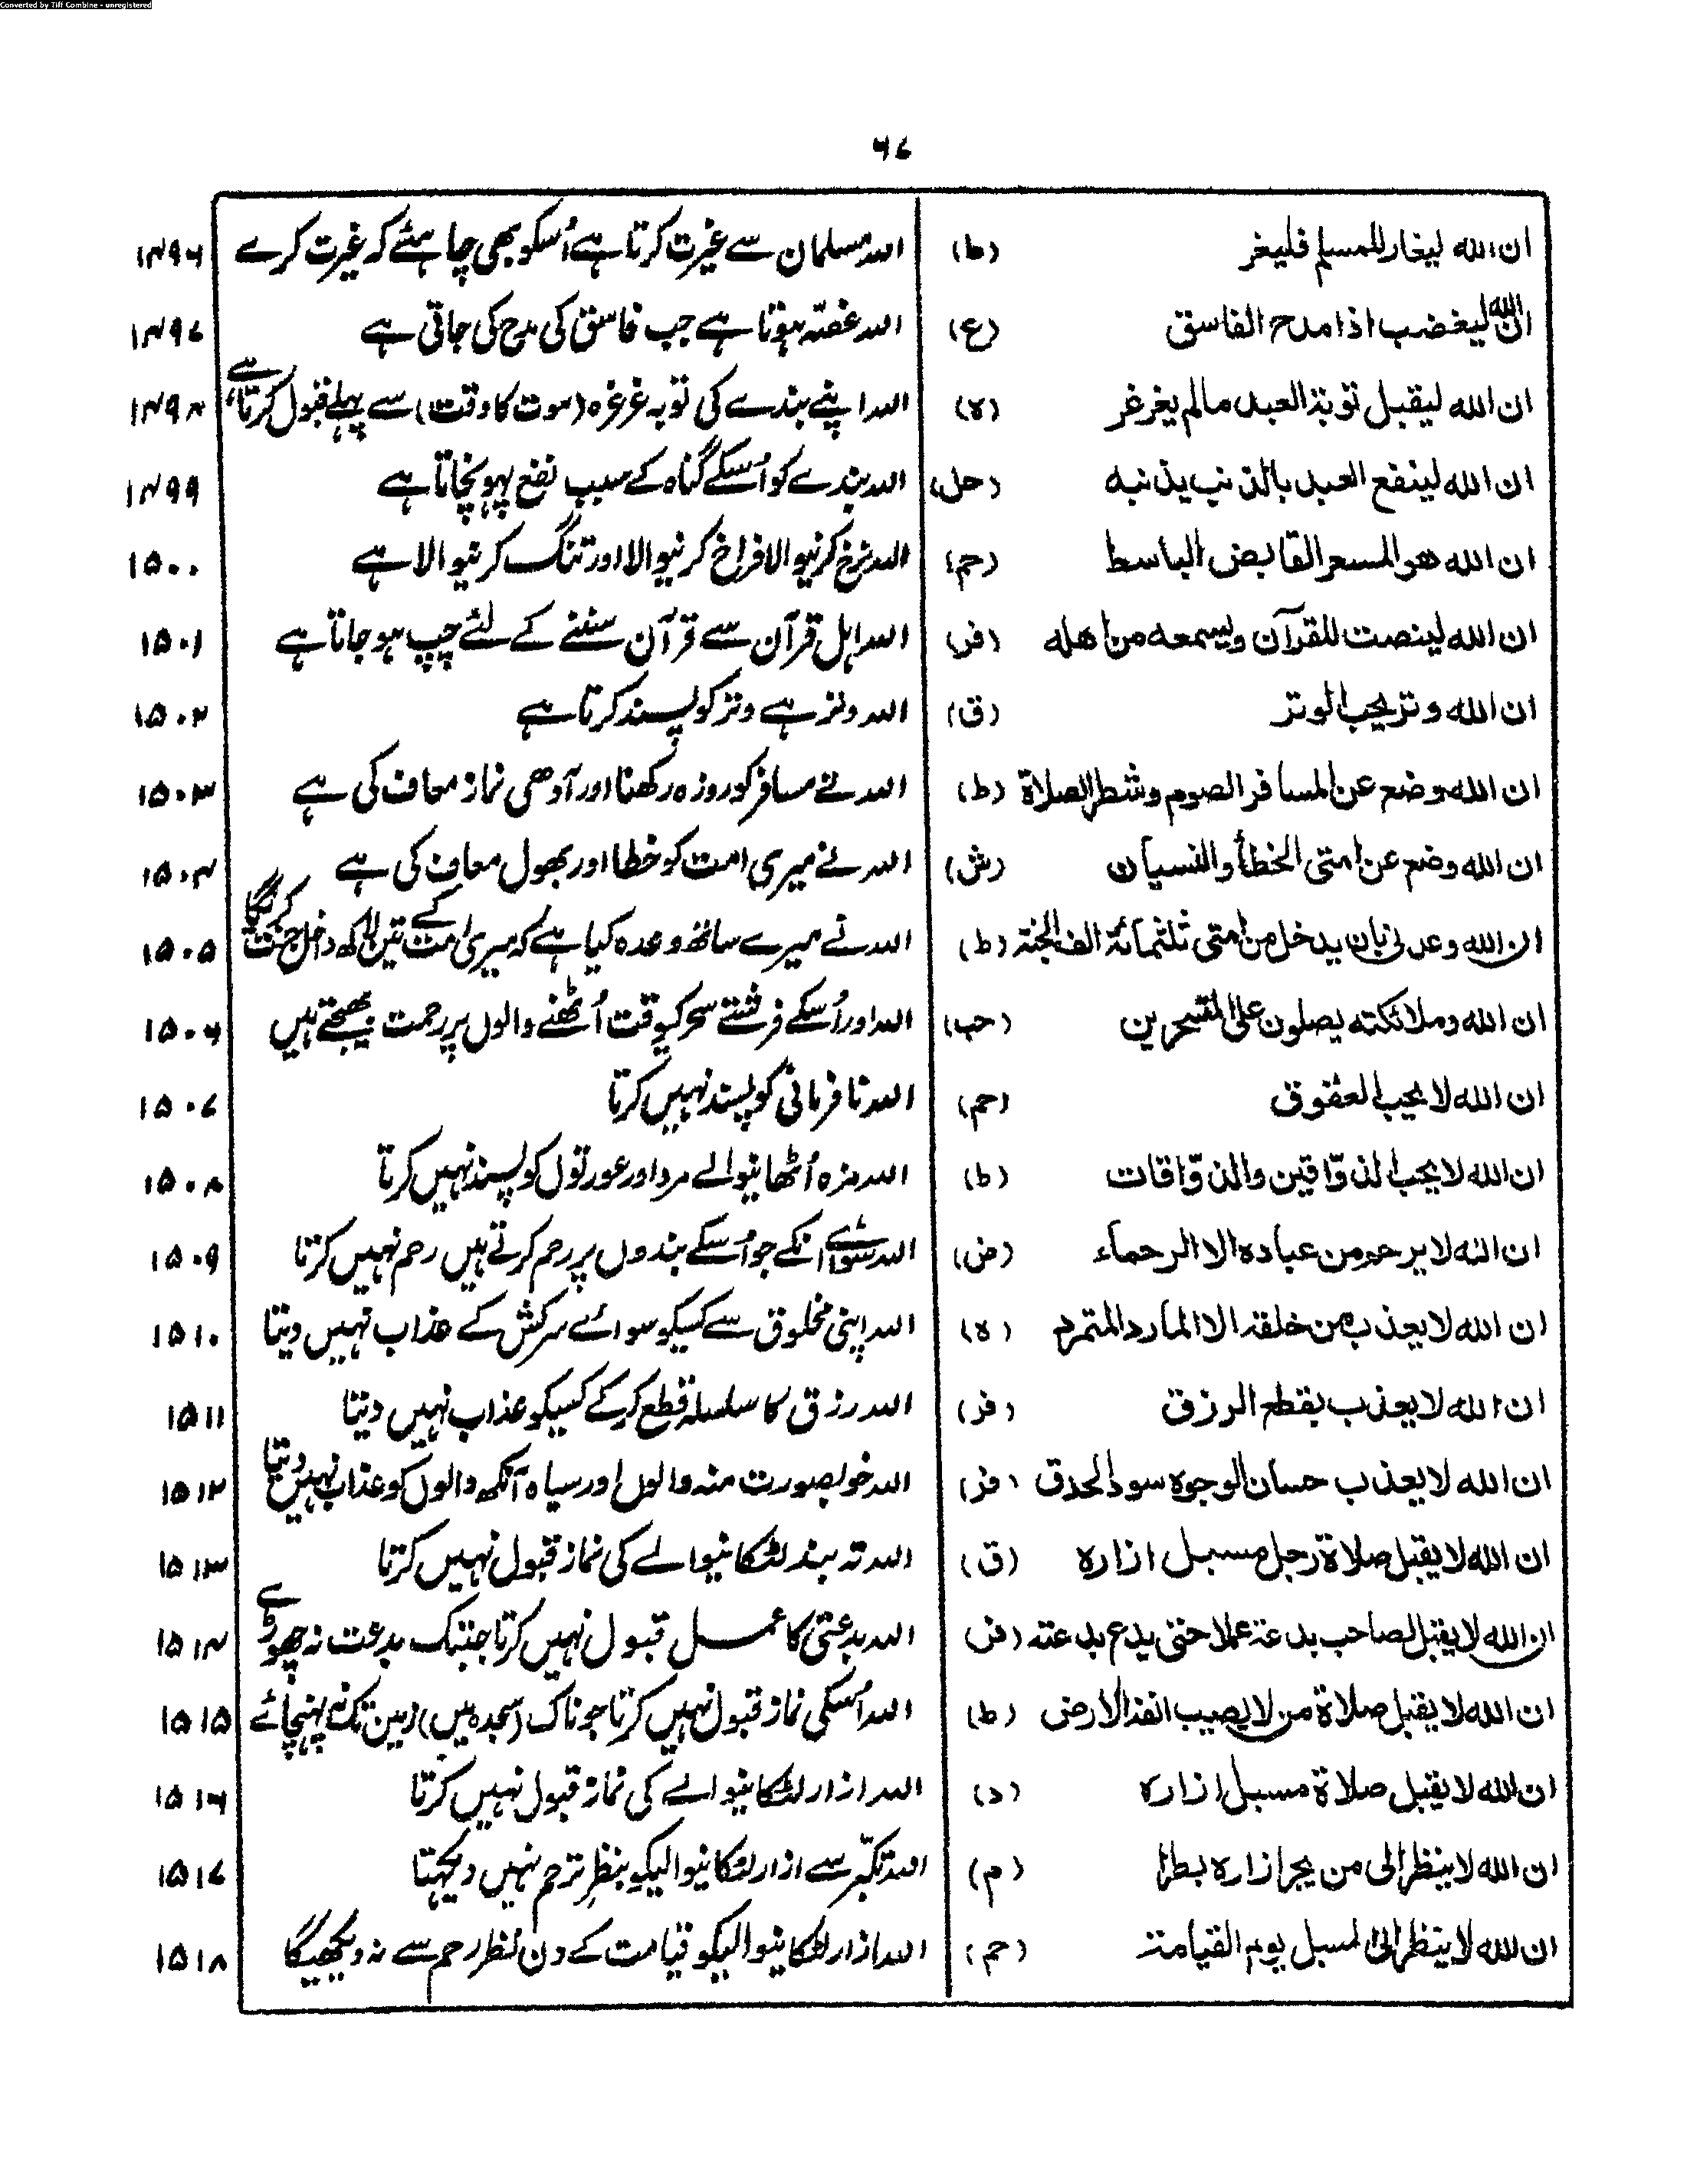 Converted by Tiff Combine - unregistered
۶۷
ان الله ليغار للمسلم فليغر (ط) اللہ مسلمان سے غیرت کرتا ہے اُسکو بھی چاہئے کہ غیرت کرے ۱۴۹۶
ان الله ليغضب اذا مدح الفاسق (ع) اللہ غصّہ ہوتا ہے جب فاسق کی مدح کی جاتی ہے ۱۴۹۷
ان الله ليقبل توبة العبد مالم يغرغر (ه) اللہ اپنے بندے کی توبہ غرغرہ (موت کا وقت) سے پہلے قبول کرتا ہے ۱۴۹۸
ان الله لينفع العبد بالذنب يذنبه (حل) اللہ بندے کو اُسکے گناہ کے سبب نفع پہونچاتا ہے ۱۴۹۹
ان الله هو المسعر القابض الباسط (حم) اللہ نرخ کرنیوالا فراخ کرنیوالا اور تنگ کرنیوالا ہے ۱۵۰۰
ان الله لينصت للقرآن ويسمعه من اهله (فر) اللہ اہل قرآن سے قرآن سننے کے لئے چپ ہو جاتا ہے ۱۵۰۱
ان الله وتر يحب الوتر (ق) اللہ وتر ہے وتر کو پسند کرتا ہے ۱۵۰۲
ان الله وضع عن المسافر الصوم وشطر الصلاة (ط) اللہ نے مسافر کو روزہ رکھنا اور آدھی نماز معاف کی ہے ۱۵۰۳
ان الله وضع عن امتى الخطأ والنسيان (ش) اللہ نے میری امت کو خطا اور بھول معاف کی ہے ۱۵۰۴
ان الله وعدنى بان يدخل من امتى ثلثمائة الف الجنة (ط) اللہ نے میرے ساتھ وعدہ کیا ہے کہ میری امت کے تین لاکھ داخل جنت کریگا ۱۵۰۵
ان الله وملائكته يصلون على المتسحرين (حب) اللہ اور اُسکے فرشتے سحر کیوقت اُٹھنے والوں پر رحمت بھیجتے ہیں ۱۵۰۶
ان الله لا يحب العقوق (حم) اللہ نافرمانی کو پسند نہیں کرتا ۱۵۰۷
ان الله لا يحب الذوّاقين والذوّاقات (ط) اللہ مزہ اُٹھانیوالے مرد اور عورتوں کو پسند نہیں کرتا ۱۵۰۸
ان الله لا يرحم من عباده الا الرحماء (ض) اللہ سوائے انکے جو اُسکے بندوں پر رحم کرتے ہیں رحم نہیں کرتا ۱۵۰۹
ان الله لا يعذب من خلقه الا المارد المتمرد (ه) اللہ اپنی مخلوق سے کسیکو سوائے سرکش کے عذاب نہیں دیتا ۱۵۱۰
ان الله لا يعذب بقطع الرزق (فر) اللہ رزق کا سلسلہ قطع کر کے کسیکو عذاب نہیں دیتا ۱۵۱۱
ان الله لا يعذب حسان الوجوه سود الحدق (فر) اللہ خوبصورت منہ والوں اور سیاہ آنکھ والوں کو عذاب نہیں دیتا ۱۵۱۲
ان الله لا يقبل صلاة رجل مسبل ازاره (ق) اللہ تہ بند لٹکانیوالے کی نماز قبول نہیں کرتا ۱۵۱۳
ان الله لا يقبل لصاحب بدعة عملا حتى يدع بدعته (فر) اللہ بدعتی کا عمل قبول نہیں کرتا جبتک بدعت نہ چھوڑے ۱۵۱۴
ان الله لا يقبل صلاة من لا يصيب انفه الارض (ط) اللہ اُسکی نماز قبول نہیں کرتا جو ناک (سجدہ میں) زمین تک نہ پہنچائے ۱۵۱۵
ان الله لا يقبل صلاة مسبل ازاره (د) اللہ ازار لٹکانیوالے کی نماز قبول نہیں کرتا ۱۵۱۶
ان الله لا ينظر الى من يجر ازاره بطرا (م) اللہ تکبّر سے ازار لٹکانیوالیکو بنظرِ ترحم نہیں دیکھتا ۱۵۱۷
ان الله لا ينظر الى مسبل يوم القيامة (حم) اللہ ازار لٹکانیوالیکو قیامت کے دن نظر رحم سے نہ دیکھیگا ۱۵۱۸